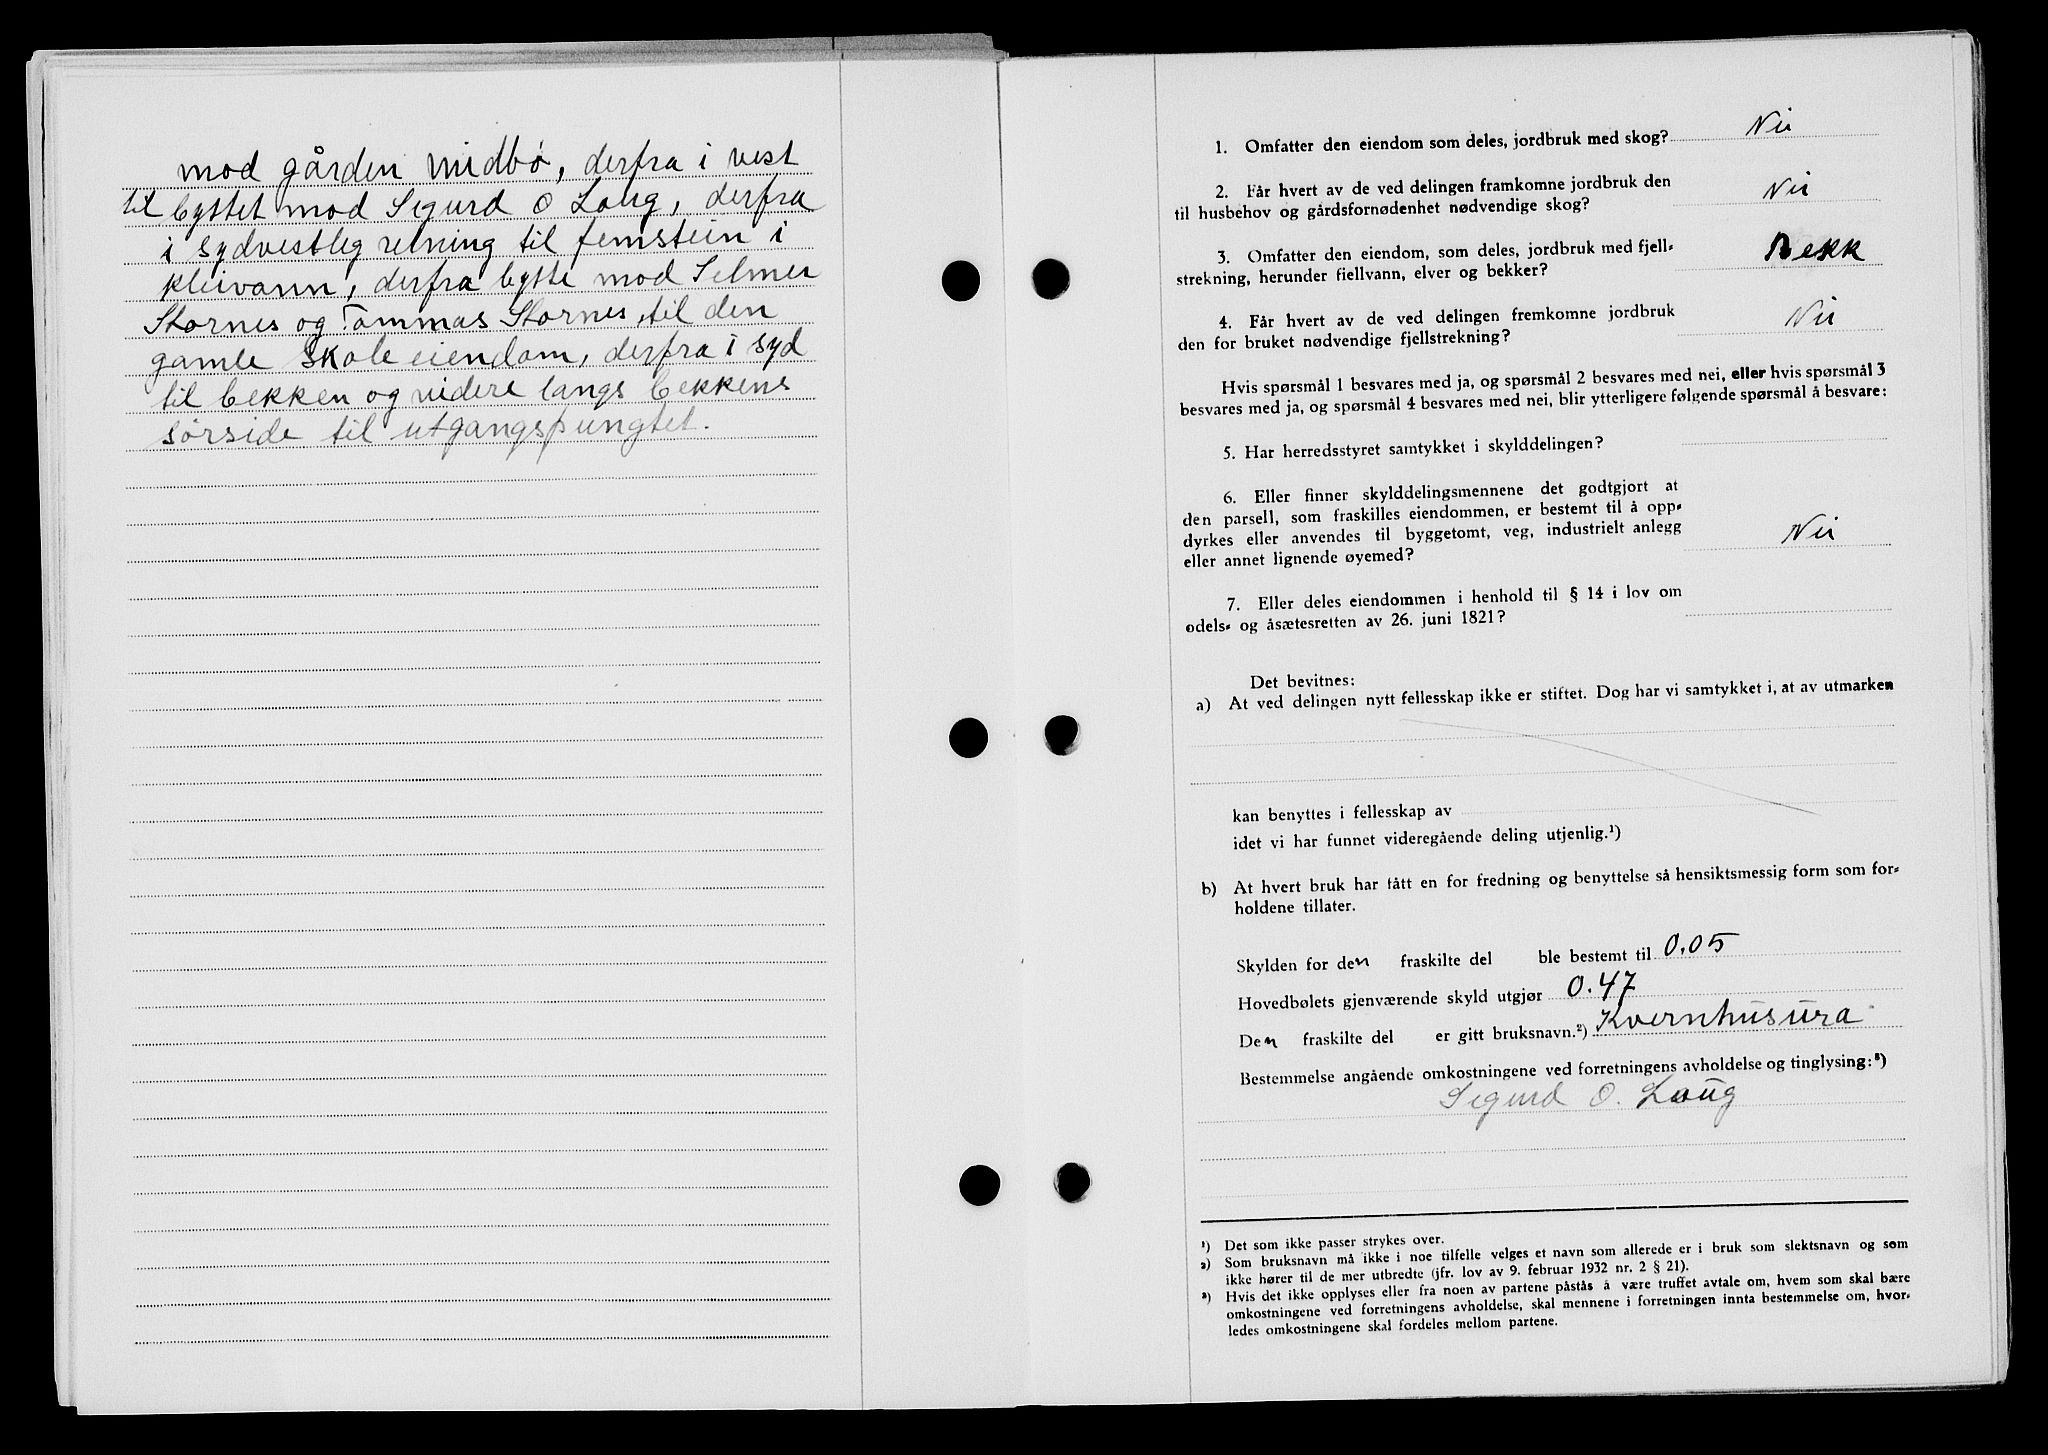 mod gården Midbø, derfra i vest
til byttet mod Sigurd O Laug, derfra
i sydvestlig retning til femstein i
kleivann, derfra bytte mod Selmer
Stornes og Tommas Stornes, til den
gamle skole eiendom, derfra i syd
til bekken og videre langs bekkens
sørside til utgangspungtet.
1. Omfatter den eiendom som deles, jordbruk med skog? Nei
2. Får hvert av de ved delingen framkomne jordbruk den
til husbehov og gårdsfornødenhet nødvendige skog? Nei
3. Omfatter den eiendom, som deles, jordbruk med fjell-
strekning, herunder fiellvann, elver og bekker? Bekk
4. Får hvert av de ved delingen fremkomne jordbruk
den for bruket nødvendige fjellstrekning? Nei
Hvis spørsmål 1 besvares med ja, og spørsmål 2 besvares med nei, eller hvis spørsmål 3
besvares med ja, og spørsmål 4 besvares med nei, blir ytterligere følgende spørsmål å besvare:
5. Har herredsstyret samtykket i skylddelingen?
6. Eller finner skylddelingsmennene det godtgjort at
den parsell, som fraskilles eiendommen, er bestemt til å opp-
dyrkes eller anvendes til byggetomt, veg, industrielt anlegg
eller annet lignende øyemed? Nei
7. Eller deles eiendommen i henhold til § 14 i lov om
odels- og åsætesretten av 26. juni 1821?
Det bevitnes:
a) At ved delingen nytt fellesskap ikke er stiftet. Dog har vi samtykket i, at av utmarken
kan benyttes i fellesskap av
idet vi har funnet videregående deling utjenlig.¹)
b) At hvert bruk har fått en for fredning og benyttelse så hensiktsmessig form som for-
holdene tillater.
Skylden for den fraskilte del ble bestemt til 0,05
Hovedbølets gjenværende skyld utgjør 0.47
Den fraskilte del er gitt bruksnavn.²) Kvernhusura
Bestemmelse angående omkostningene ved forretningens avholdelse og tinglysing:³)
Sigurd O. Laug
¹) Det som ikke passer strykes over.
²) Som bruksnavn må ikke i noe tilfelle velges et navn som allerede er i bruk som slektsnavn og som
ikke hører til de mer utbredte (jfr. lov av 9. februar 1932 nr. 2 § 21).
³) Hvis det ikke opplyses eller fra noen av partene påstås å være truffet avtale om, hvem som skal bære
omkostningene ved forretningens avholdelse, skal mennene i forretningen innta bestemmelse om, hvor-
ledes omkostningene skal fordeles mellom partene.